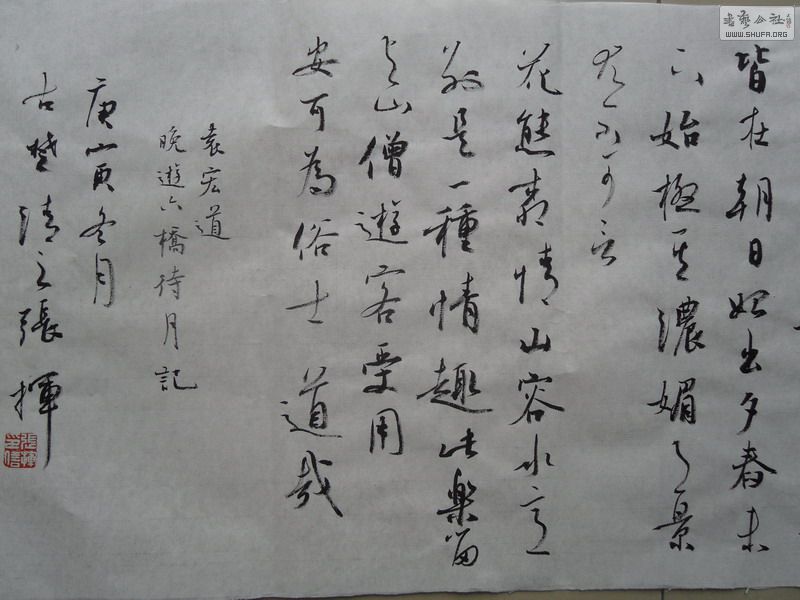 皆在朝日始出夕舂未
下始極其濃媚月景
尤不可言
花態柳情山容水意
別是一種情趣此樂留
與山僧遊客受用
安可為俗士道哉
袁宏道
晚遊六橋待月記
庚寅冬月
古楚清之張揮
書藝公社
WWW.SHUFA.ORG